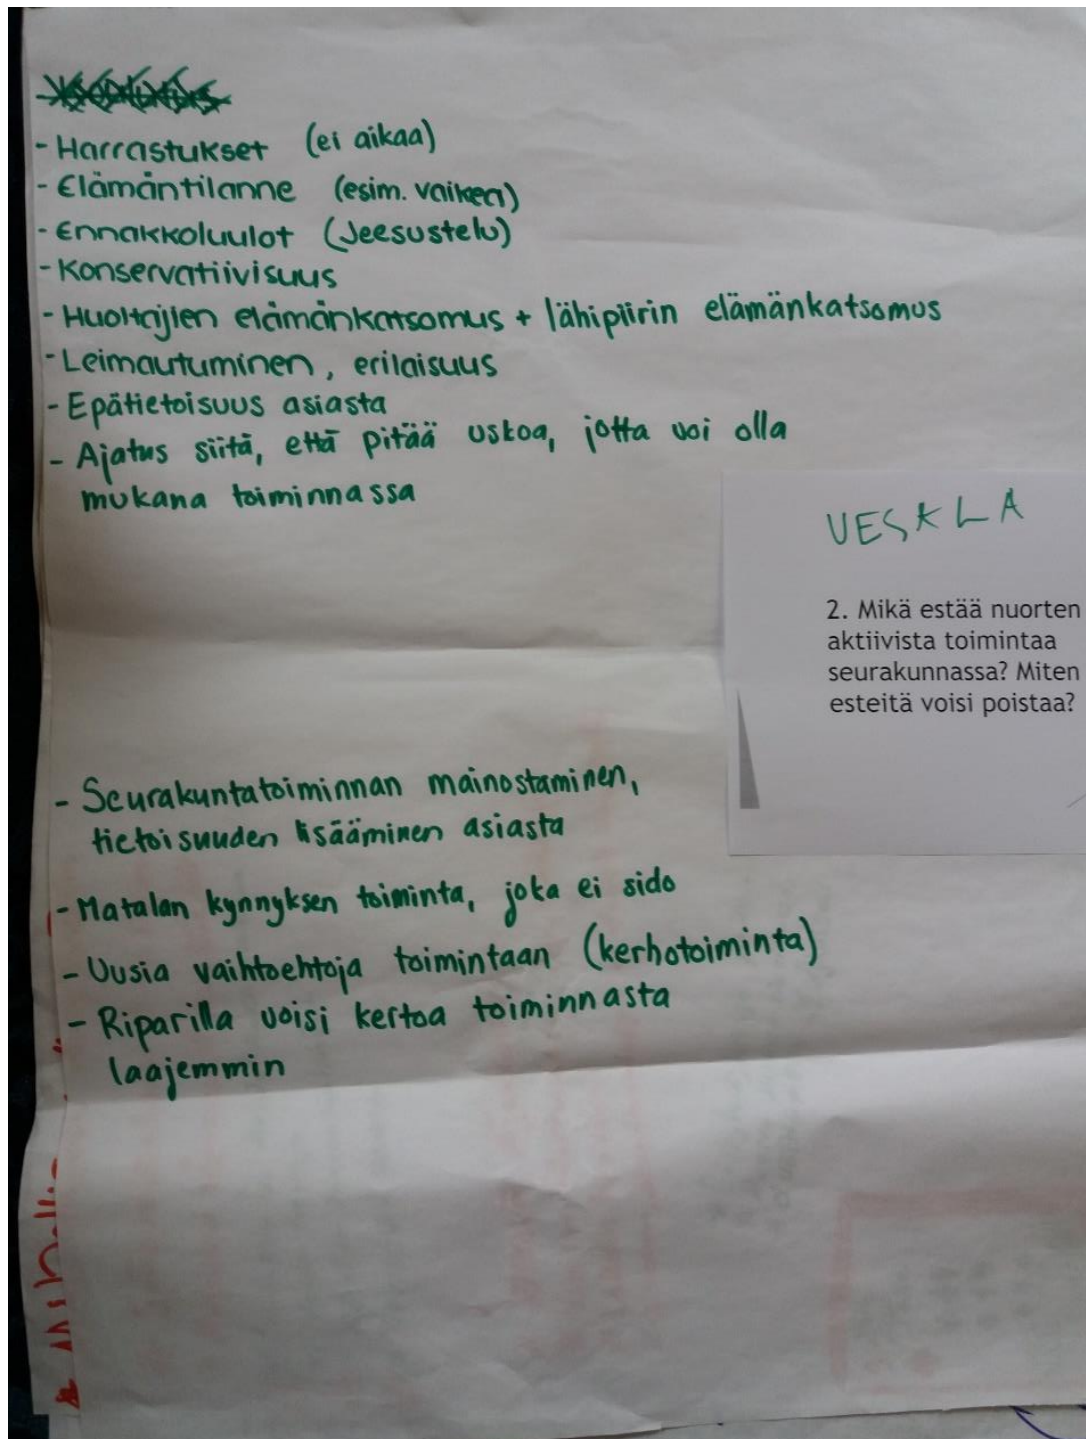 - Harrastukset (ei aikaa)
- Elämäntilanne (esim. vaikea)
- Ennakkoluulot (Jeesustelu)
- Konservatiivisuus
- Huoltajien elämänkatsomus + lähipiirin elämänkatsomus
- Leimautuminen, erilaisuus
- Epätietoisuus asiasta
- Ajatus siitä, että pitää uskoa, jotta voi olla
mukana toiminnassa
VESKLA
2. Mikä estää nuorten
aktiivista toimintaa
seurakunnassa? Miten
esteitä voisi poistaa?
- Seurakuntatoiminnan mainostaminen,
tietoisuuden lisääminen asiasta
- Matalan kynnyksen toiminta, joka ei sido
- Uusia vaihtoehtoja toimintaan (kerhotoiminta)
- Riparilla voisi kertoa toiminnasta
laajemmin